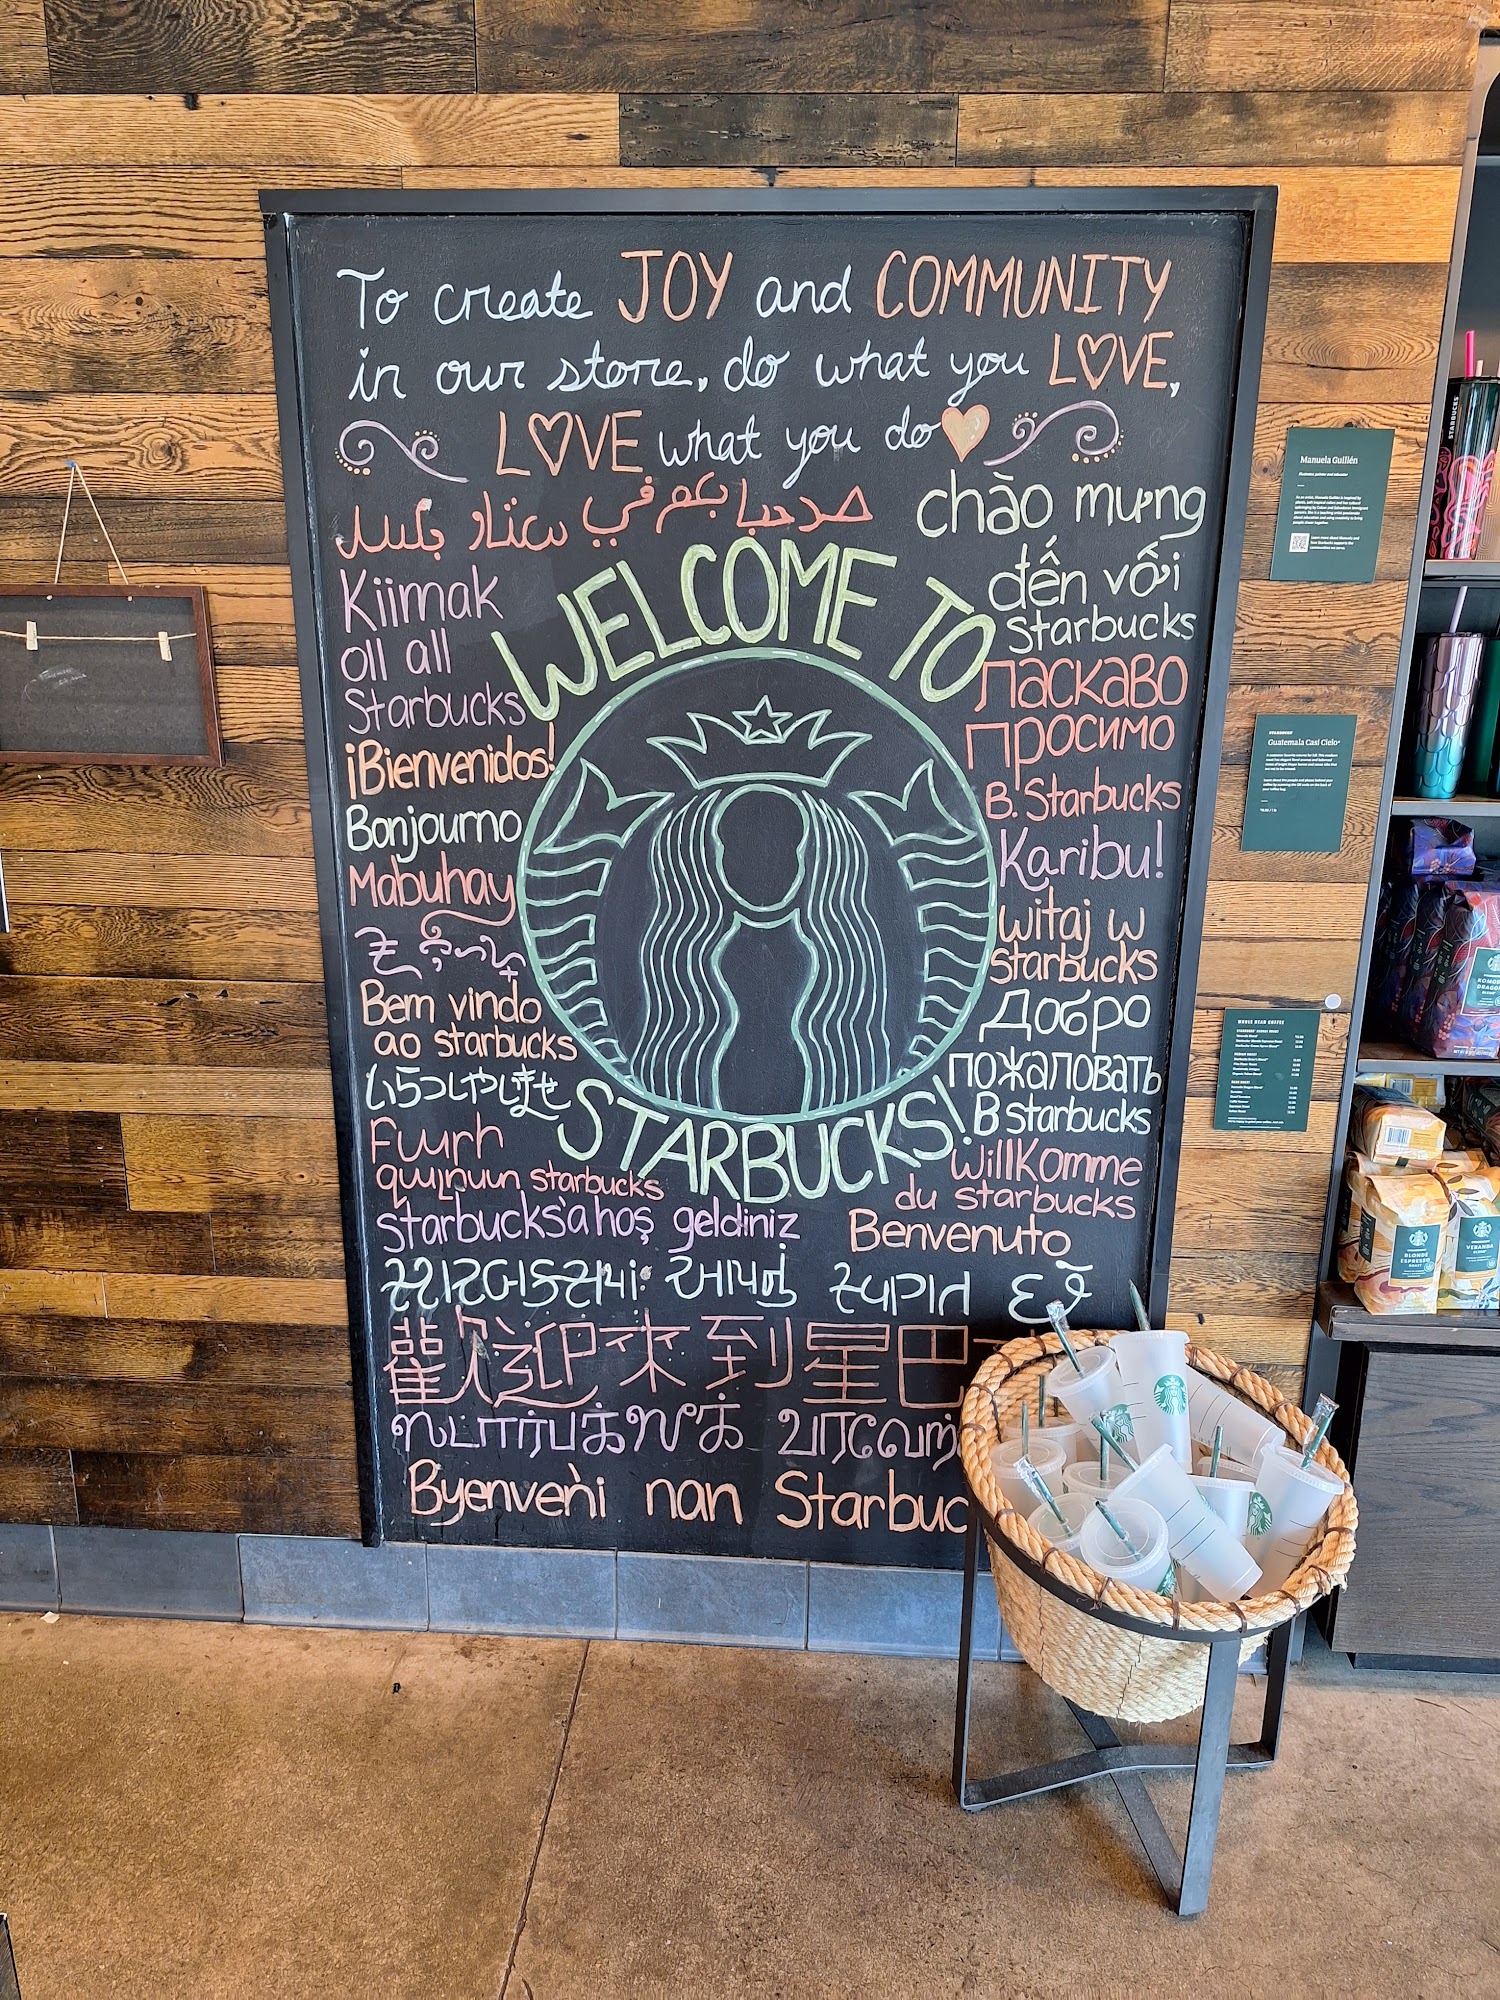 To create JOY and COMMUNITY
in our store, do what you LOVE,
LOVE what you do
مرحبا بكم في ستار بكس
chào mưng
đến vối
Starbucks
WELCOME TO
STARBUCKS!
Kiimak
oll all
Starbucks
¡Bienvenidos!
Bonjourno
Mabuhay
Bem vindo
ao starbucks
いらっしゃいませ
starbucks
Starbucks'a hoş geldiniz
ласкаво
просимо
в. Starbucks
Karibu!
witaj w
starbucks
Добро
пожаловать
в starbucks
Willkomme
du starbucks
Benvenuto
સ્ટારબક્સમાં આપનું સ્વાગત છે
歡迎來到星巴
ஸ்டார்பக்ஸ்க்
Byenveni nan Starbuc
Manuela Guillén
Guatemala Casi Cielo
WHOLE BEAN COFFEE
STARBUCKS
KOMODO
DRAGON
BLEND
BLONDE
ESPRESSO
ROAST
VERANDA
BLEND